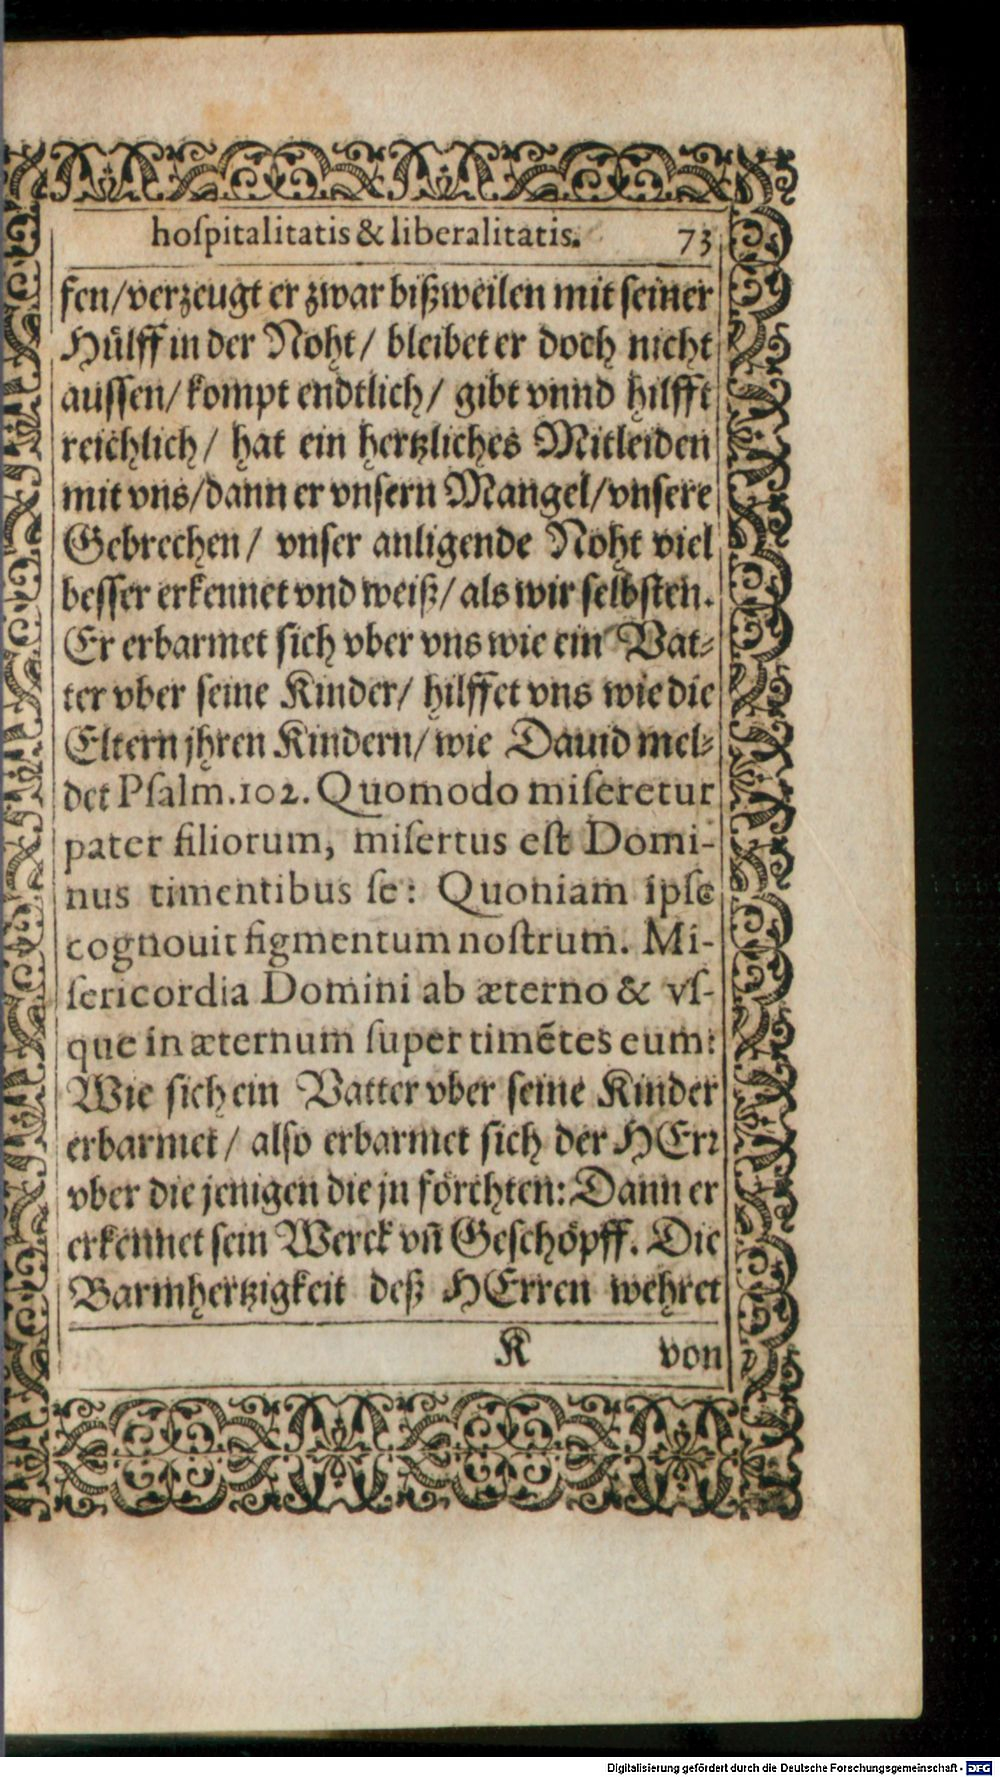 hoſpitalitatis & liberalitatis. 73
fen/verzeugt er zwar bißweilen mit ſeiner
Hülff in der Noht/ bleibet er doch nicht
auſſen/ kompt endtlich/ gibt vnnd hilfft
reichlich/ hat ein hertzliches Mitleiden
mit vns/dann er vnſern Mangel/vnſere
Gebrechen/ vnſer anligende Noht viel
beſſer erkennet vnd weiß/ als wir ſelbſten.
Er erbarmet ſich vber vns wie ein Vat⸗
ter vber ſeine Kinder/ hilffet vns wie die
Eltern jhren Kindern/ wie Dauid mel⸗
det Pſalm.102. Quomodo miſeretur
pater filiorum, miſertus eſt Domi-
nus timentibus ſe: Quoniam ipſe
cognouit figmentum noſtrum. Mi-
ſericordia Domini ab æterno & vſ-
que in æternum ſuper timẽtes eum:
Wie ſich ein Vatter vber ſeine Kinder
erbarmet/ alſo erbarmet ſich der HErꝛ
vber die jenigen die jn förchten: Dann er
erkennet ſein Werck vñ Geſchöpff. Die
Barmhertzigkeit deß HErren wehret
K von
Digitalisierung gefördert durch die Deutsche Forschungsgemeinschaft - DFG